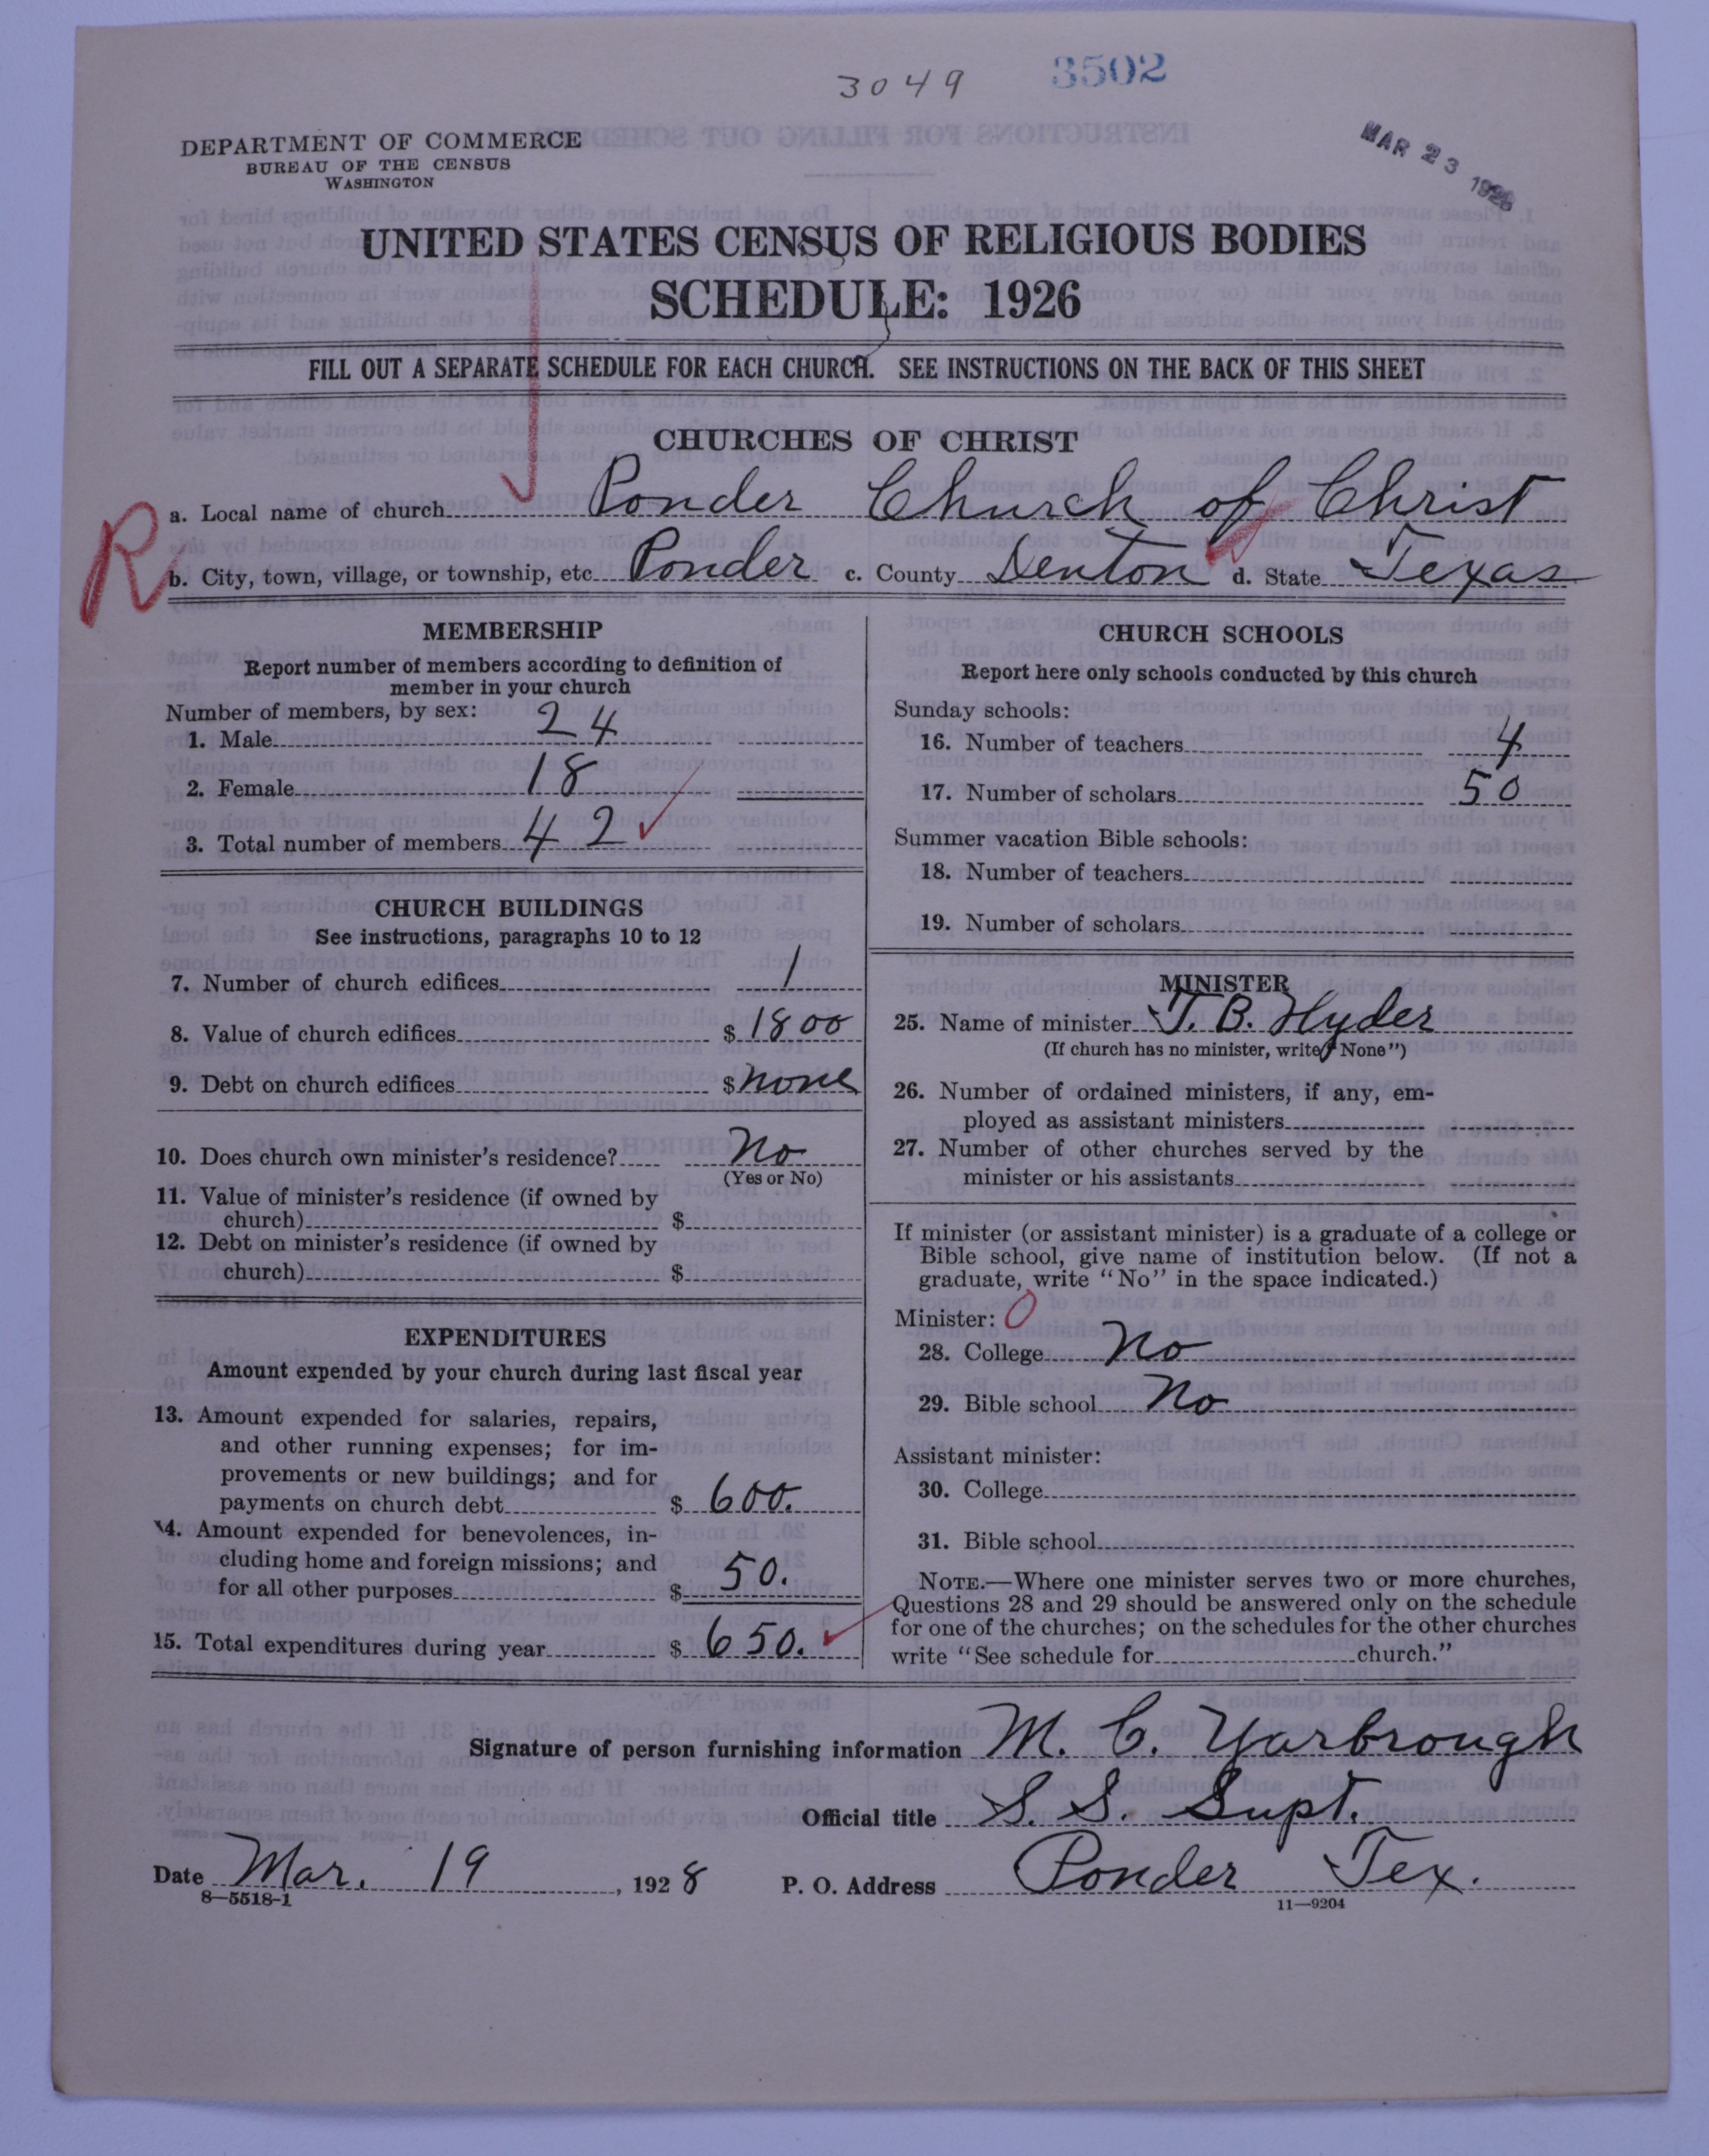 3049 3502
MAR 23 1928
DEPARTMENT OF COMMERCE
BUREAU OF THE CENSUS
WASHINGTON
UNITED STATES CENSUS OF RELIGIOUS BODIES
SCHEDULE: 1926
FILL OUT A SEPARATE SCHEDULE FOR EACH CHURCH. SEE INSTRUCTIONS ON THE BACK OF THIS SHEET
CHURCHES OF CHRIST
R
a. Local name of church Ponder Church of Christ
b. City, town, village, or township, etc. Ponder c. County Denton d. State Texas
MEMBERSHIP
Report number of members according to definition of
member in your church
Number of members, by sex:
1. Male 24
2. Female 18
3. Total number of members 42
CHURCH BUILDINGS
See instructions, paragraphs 10 to 12
7. Number of church edifices 1
8. Value of church edifices $ 1800
9. Debt on church edifices $ none
10. Does church own minister's residence? No
(Yes or No)
11. Value of minister's residence (if owned by
church) $
12. Debt on minister's residence (if owned by
church) $
EXPENDITURES
Amount expended by your church during last fiscal year
13. Amount expended for salaries, repairs,
and other running expenses; for im-
provements or new buildings; and for
payments on church debt $ 600.
14. Amount expended for benevolences, in-
cluding home and foreign missions; and
for all other purposes $ 50.
15. Total expenditures during year $ 650.
CHURCH SCHOOLS
Report here only schools conducted by this church
Sunday schools:
16. Number of teachers 4
17. Number of scholars 50
Summer vacation Bible schools:
18. Number of teachers
19. Number of scholars
MINISTER
25. Name of minister T. B. Hyder
(If church has no minister, write "None")
26. Number of ordained ministers, if any, em-
ployed as assistant ministers
27. Number of other churches served by the
minister or his assistants
If minister (or assistant minister) is a graduate of a college or
Bible school, give name of institution below. (If not a
graduate, write "No" in the space indicated.)
Minister: 0
28. College No
29. Bible school No
Assistant minister:
30. College
31. Bible school
NOTE.—Where one minister serves two or more churches,
Questions 28 and 29 should be answered only on the schedule
for one of the churches; on the schedules for the other churches
write "See schedule for church."
Signature of person furnishing information M. C. Yarbrough
Official title S. S. Supt.
Date Mar. 19, 1928 P. O. Address Ponder Tex.
8—5518-1 11—9204